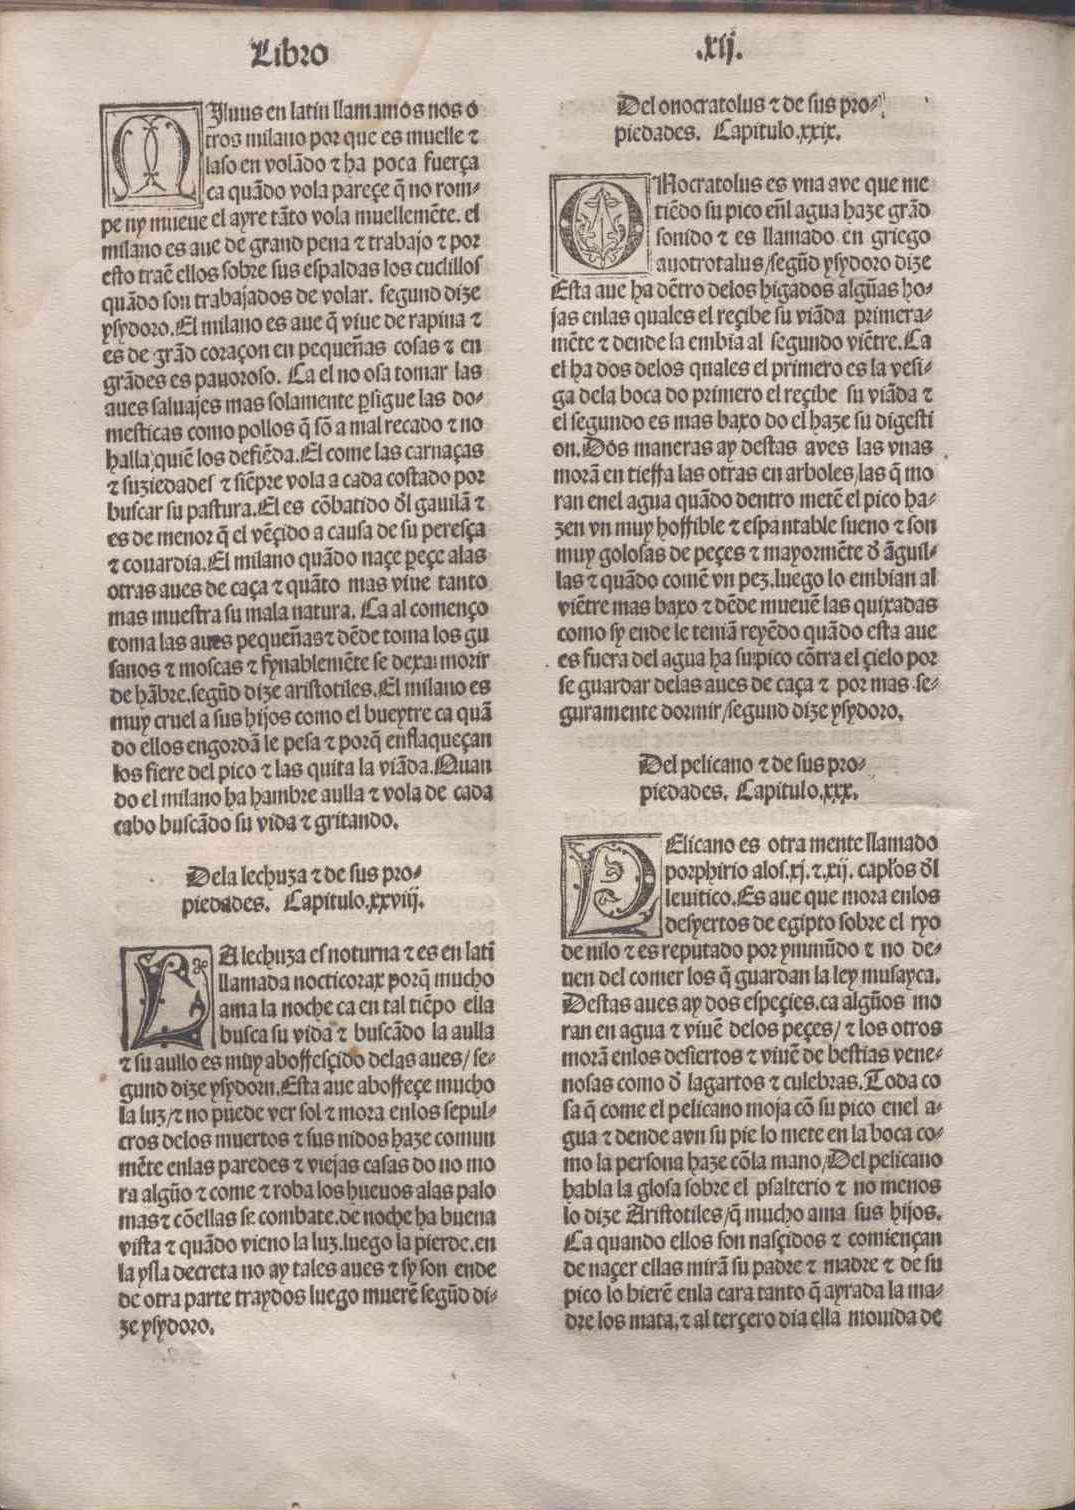 Libro
.xij.
MJluus en latin llamamos nos o
tros milano por que es muelle ⁊
laso en volãdo ⁊ ha poca fuerça
ca quãdo vola pareçe q̃ no rom-
pe ny mueue el ayre tãto vola muellemẽte. el
milano es aue de grand pena ⁊ trabajo ⁊ por
esto traẽ ellos sobre sus espaldas los cuclillos
quãdo son trabajados de volar. segund dize
ysydoro. El milano es aue q̃ viue de rapina ⁊
es de grãd coraçon en pequeñas cosas ⁊ en
grãdes es pauoroso. Ca el no osa tomar las
aues saluajes mas solamente ꝑsigue las do-
mesticas como pollos q̃ sõ a mal recado ⁊ no
halla quiẽ los defiẽda. El come las carnaças
⁊ suziedades ⁊ siẽpre vola a cada costado por
buscar su pastura. El es cõbatido ð̃l gauilã ⁊
es de menor q̃ el vẽçido a causa de su peresça
⁊ couardia. El milano quãdo naçe ꝑeçe alas
otras aues de caça ⁊ quãto mas viue tanto
mas muestra su mala natura. Ca al començo
toma las aues pequeñas ⁊ dẽde toma los gu
sanos ⁊ moscas ⁊ fynablemẽte se dexa morir
de hãbre. segũd dize aristotiles. El milano es
muy cruel a sus hijos como el bueytre ca quã
do ellos engordã le pesa ⁊ porq̃ enflaqueçan
los fiere del pico ⁊ las quita la viãda. Quan
do el milano ha hambre aulla ⁊ vola de cada
cabo buscãdo su vida ⁊ gritando.
Dela lechuza ⁊ de sus pro-
piedades. Capitulo. xxviij.
LA lechuza es noturna ⁊ es en latĩ
llamada nocticorax porq̃ mucho
ama la noche ca en tal tiẽpo ella
busca su vida ⁊ buscãdo la aulla
⁊ su aullo es muy aborresçido delas aues/ se-
gund dize ysydorn. Esta aue aborreçe mucho
la luz/ ⁊ no puede ver sol ⁊ mora enlos sepul-
cros delos muertos ⁊ sus nidos haze comun
mẽte enlas paredes ⁊ viejas casas do no mo
ra algũo ⁊ come ⁊ roba los hueuos alas palo
mas ⁊ cõellas se combate. de noche ha buena
vista ⁊ quãdo vieno la luz. luego la pierde. en
la ysla decreta no ay tales aues ⁊ sy son ende
de otra parte traydos luego muerẽ segũd di-
ze ysydoro.
Del onocratolus ⁊ de sus pro-
piedades. Capitulo. xxix.
ONocratolus es vna ave que me
tiẽdo su pico eñl agua haze grãd
sonido ⁊ es llamado en griego
auotrotalus/ segũd ysydoro dize
Esta aue ha dẽtro delos higados algũas ho-
jas enlas quales el reçibe su viãda primera-
mẽte ⁊ dende la embia al segundo viẽtre. Ca
el ha dos delos quales el primero es la vesi-
ga dela boca do primero el reçibe su viãda ⁊
el segundo es mas baxo do el haze su digesti
on. Dos maneras ay destas aves las vnas
morã en tierra las otras en arboles, las q̃ mo
ran enel agua quãdo dentro metẽ el pico ha-
zen vn muy horrible ⁊ espantable sueno ⁊ son
muy golosas de peçes ⁊ mayormẽte ð ãguil-
las ⁊ quãdo comẽ vn pez. luego lo embian al
viẽtre mas baxo ⁊ dẽde mueuẽ las quixadas
como sy ende le teniã reyẽdo quãdo esta aue
es fuera del agua ha su pico cõtra el çielo por
se guardar delas aues de caça ⁊ por mas se-
guramente dormir/ segund dize ysydoro.
Del pelicano ⁊ de sus pro-
piedades. Capitulo. xxx.
PElicano es otra mente llamado
porphirio alos. xj. ⁊. xij. capl̃os ð̃l
leuitico. Es aue que mora enlos
desyertos de egipto sobre el ryo
de nilo ⁊ es reputado por ymmũdo ⁊ no de-
uen del comer los q̃ guardan la ley musayca.
Destas aues ay dos espeçies. ca algũos mo
ran en agua ⁊ viuẽ delos peçes/ ⁊ los otros
morã enlos desiertos ⁊ viuẽ de bestias vene-
nosas como ð lagartos ⁊ culebras. Toda co
sa q̃ come el pelicano moja cõ su pico enel a-
gua ⁊ dende avn su pie lo mete en la boca co-
mo la persona haze cõla mano/ Del pelicano
habla la glosa sobre el psalterio ⁊ no menos
lo dize Aristotiles/ q̃ mucho ama sus hijos.
Ca quando ellos son nasçidos ⁊ comiençan
de naçer ellas mirã su padre ⁊ madre ⁊ de su
pico lo hierẽ enla cara tanto q̃ ayrada la ma-
dre los mata. ⁊ al terçero dia ella mouida de